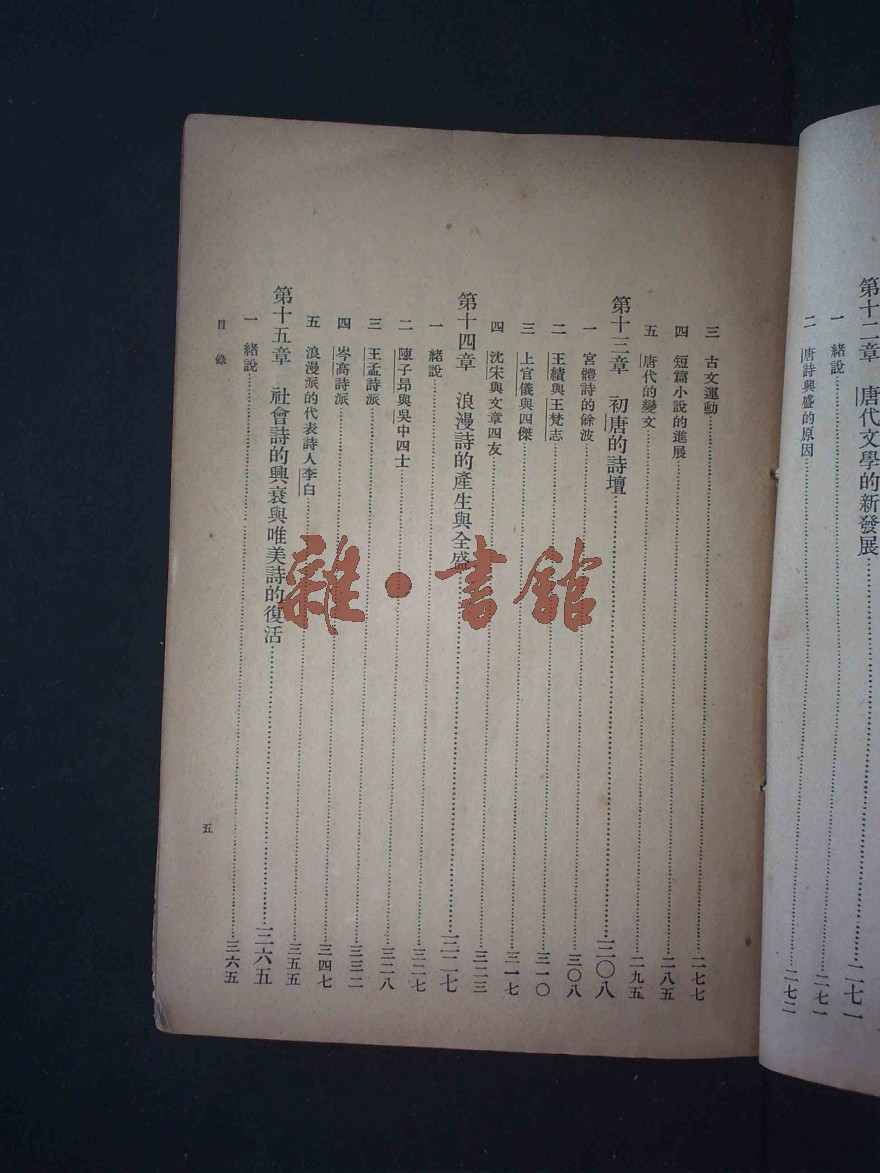 第十二章　唐代文學的新發展……二七一
一　緒說……二七一
二　唐詩興盛的原因……二七二
三　古文運動……二七七
四　短篇小說的進展……二八五
五　唐代的變文……二九五
第十三章　初唐的詩壇……三〇八
一　宮體詩的餘波……三〇八
二　王績與王梵志……三一〇
三　上官儀與四傑……三一七
四　沈宋與文章四友……三二三
第十四章　浪漫詩的產生與全盛……三二七
一　緒說……三二七
二　陳子昂與吳中四士……三二八
三　王孟詩派……三三二
四　岑高詩派……三四七
五　浪漫派的代表詩人李白……三五五
第十五章　社會詩的興衰與唯美詩的復活……三六五
一　緒說……三六五
目錄
五
雜·書館